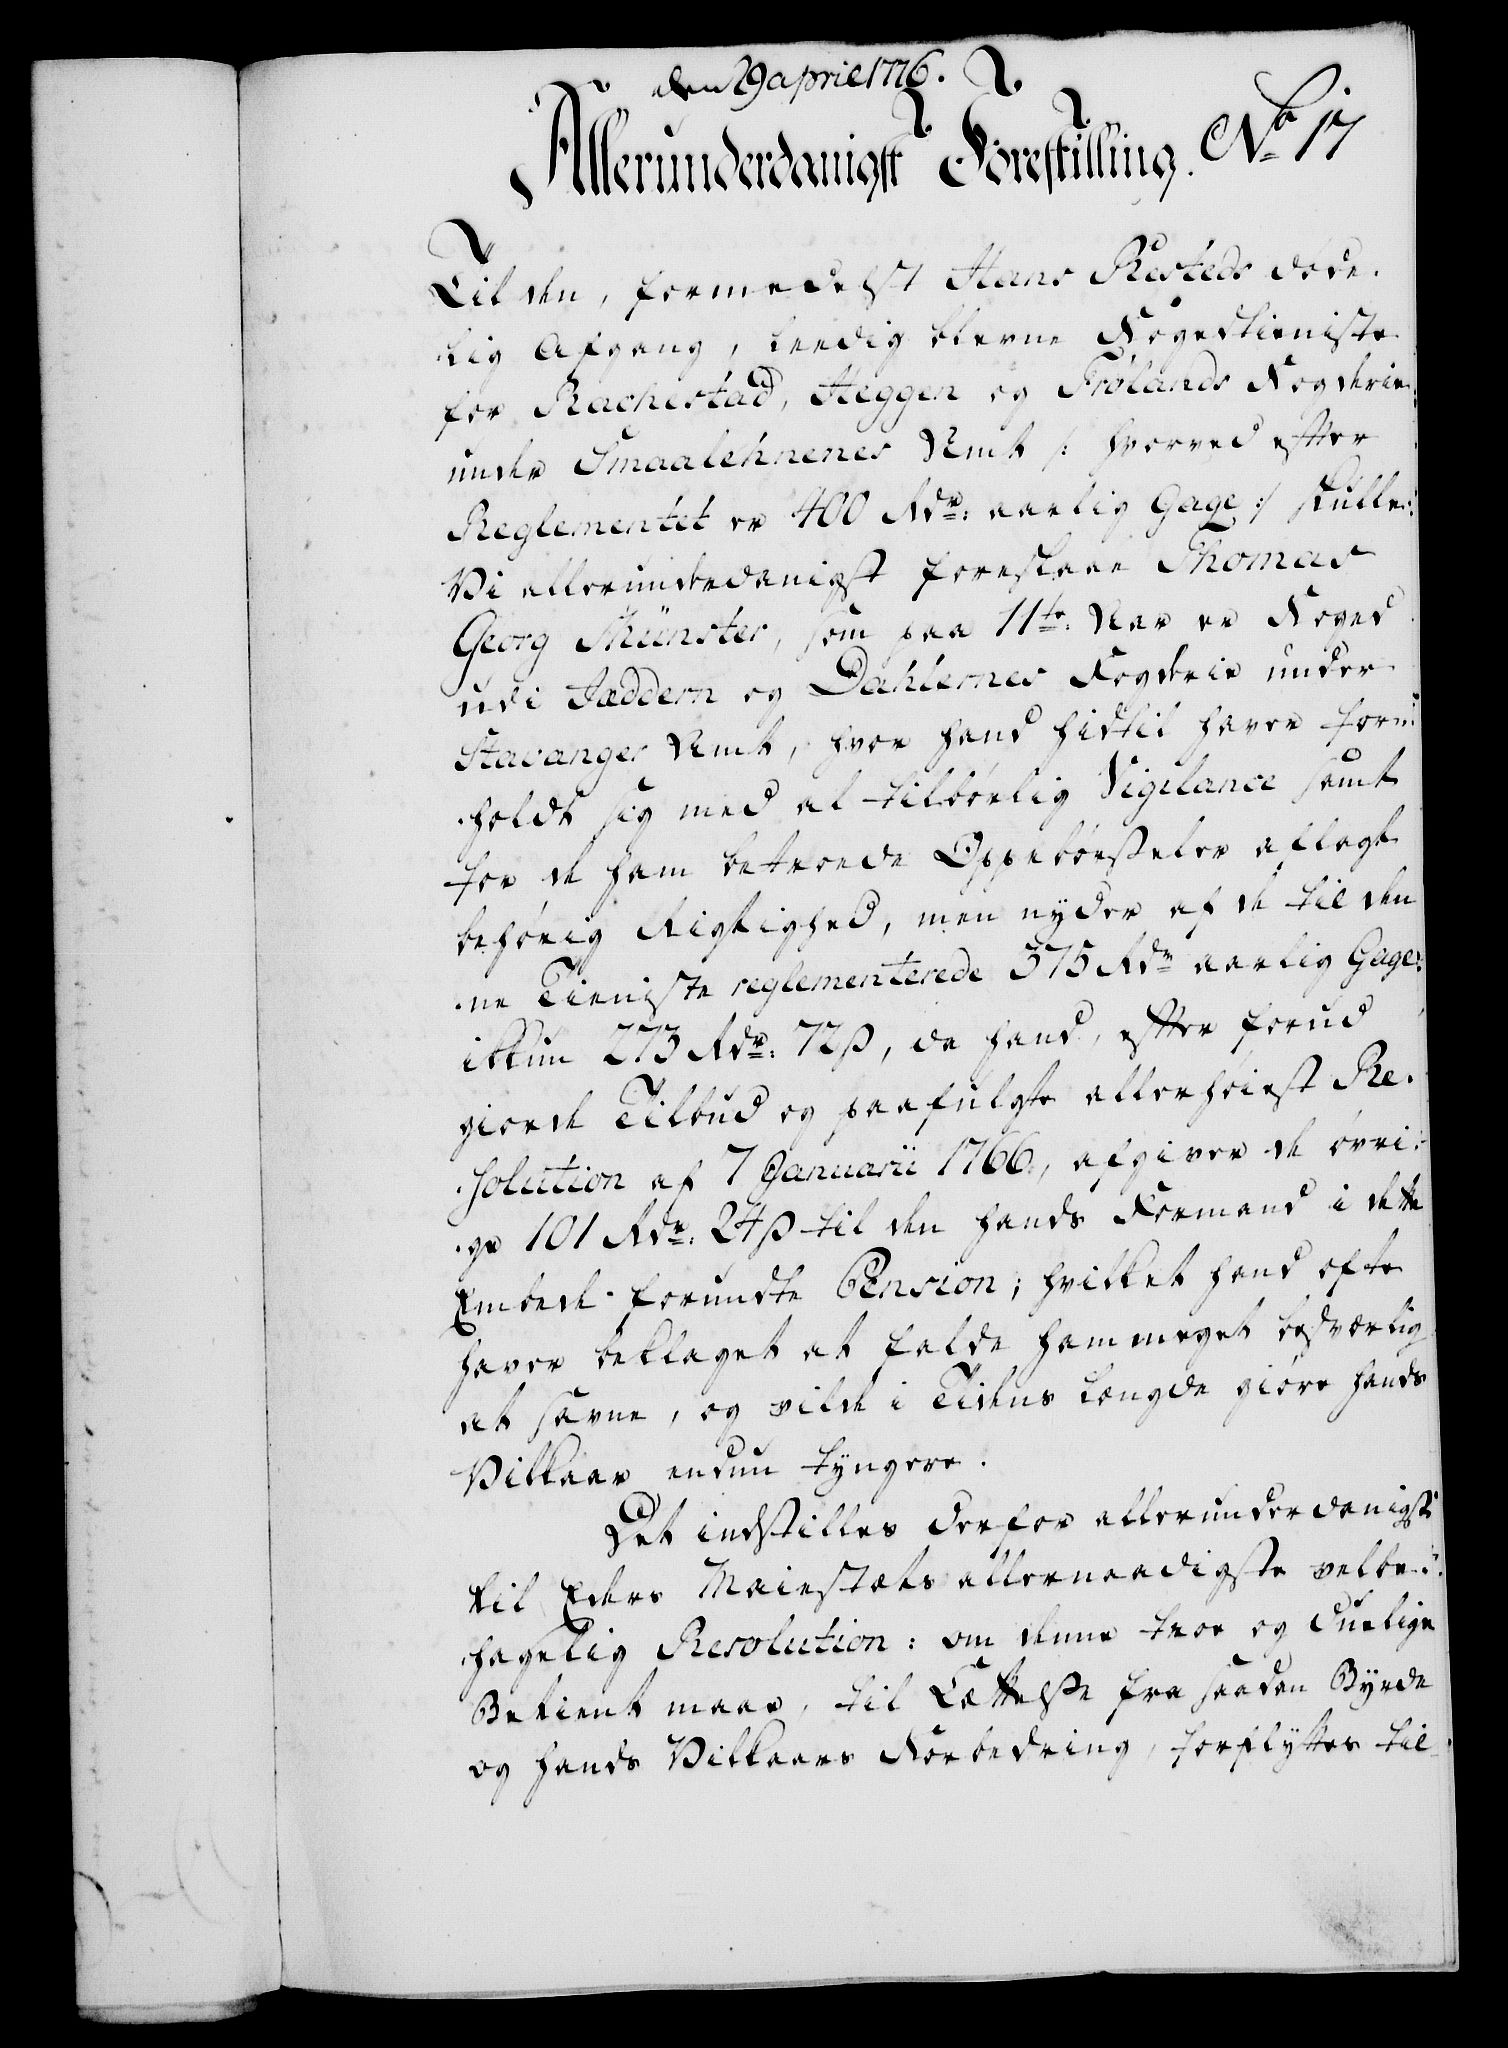 den 29 april 1776.
Allerunderdanigst Forestilling. No 17
Til den, formedelst Hans Resteds døde-
lig Afgang, leedig blevne Fogedtieniste
for Rachestad, Heggen og Frølands Fogderie
under Smaalehnenes Amt /: hvorved efter
Reglementet er 400 Rdr: aarlig Gage :/ skulle
Vi allerunderdanigst foreslaae Thomas
Georg Münster, som paa 11te Aar er Foged
udi Jæddern og Dahlernes Fogderie under
Stavanger Amt, hvor hand hidtil haver for-
holdt sig med al tilbørlig Vigilance samt
for de ham betroede Oppebørseler aflagt
behørig Rigtighed, men nyder af de til den-
ne Tieniste reglementerede 375 Rdr aarlig Gage
ikkun 273 Rdr: 72 ß, da hand, efter forud
giorde Tilbud og paafulgte allerhøiest Re-
solution af 7 Januarii 1766, afgiver de øvri-
ge 101 Rdr: 24 ß til den hands Formand i dette
Embede forundte Pension; hvilket hand ofte
haver beklaget at falde ham meget besværlig
at savne, og vilde i Tidens Længde giøre hands
Vilkaar endnu tyngere.
Det indstilles derfor allerunderdanigst
til Eders Maiestæts allernaadigste velbe-
hagelig Resolution: om denne troe og duelige
Betient maae, til Lættelse fra saadan Byrde
og hands Vilkaars Forbedring, forflyttes til